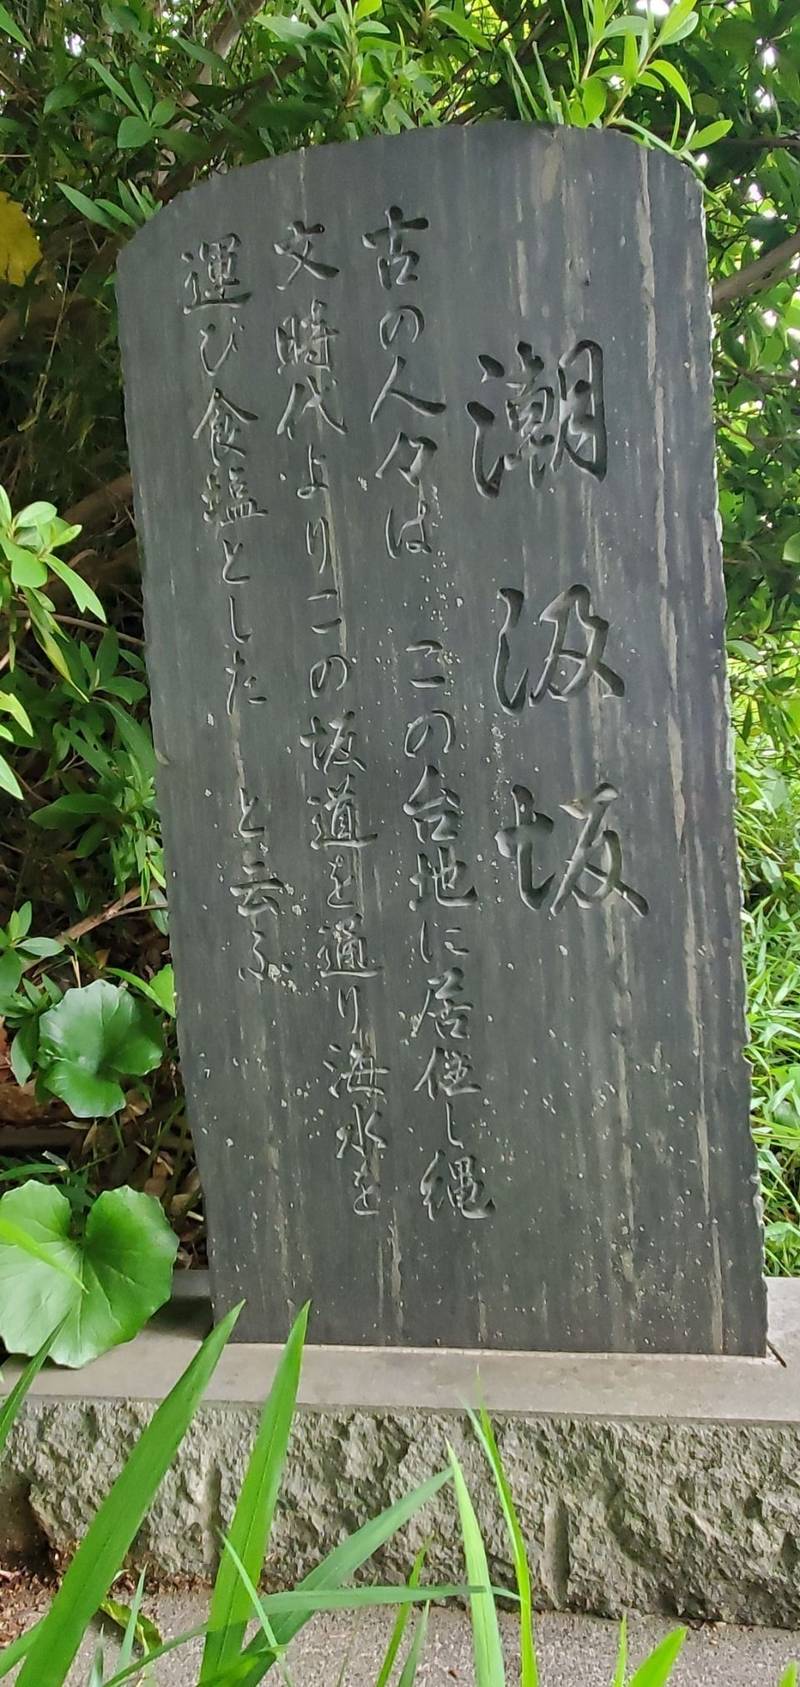 潮汲坂
古の人々は この台地に居住し縄
文時代よりこの坂道を通り海水を
運び食塩とした と云ふ